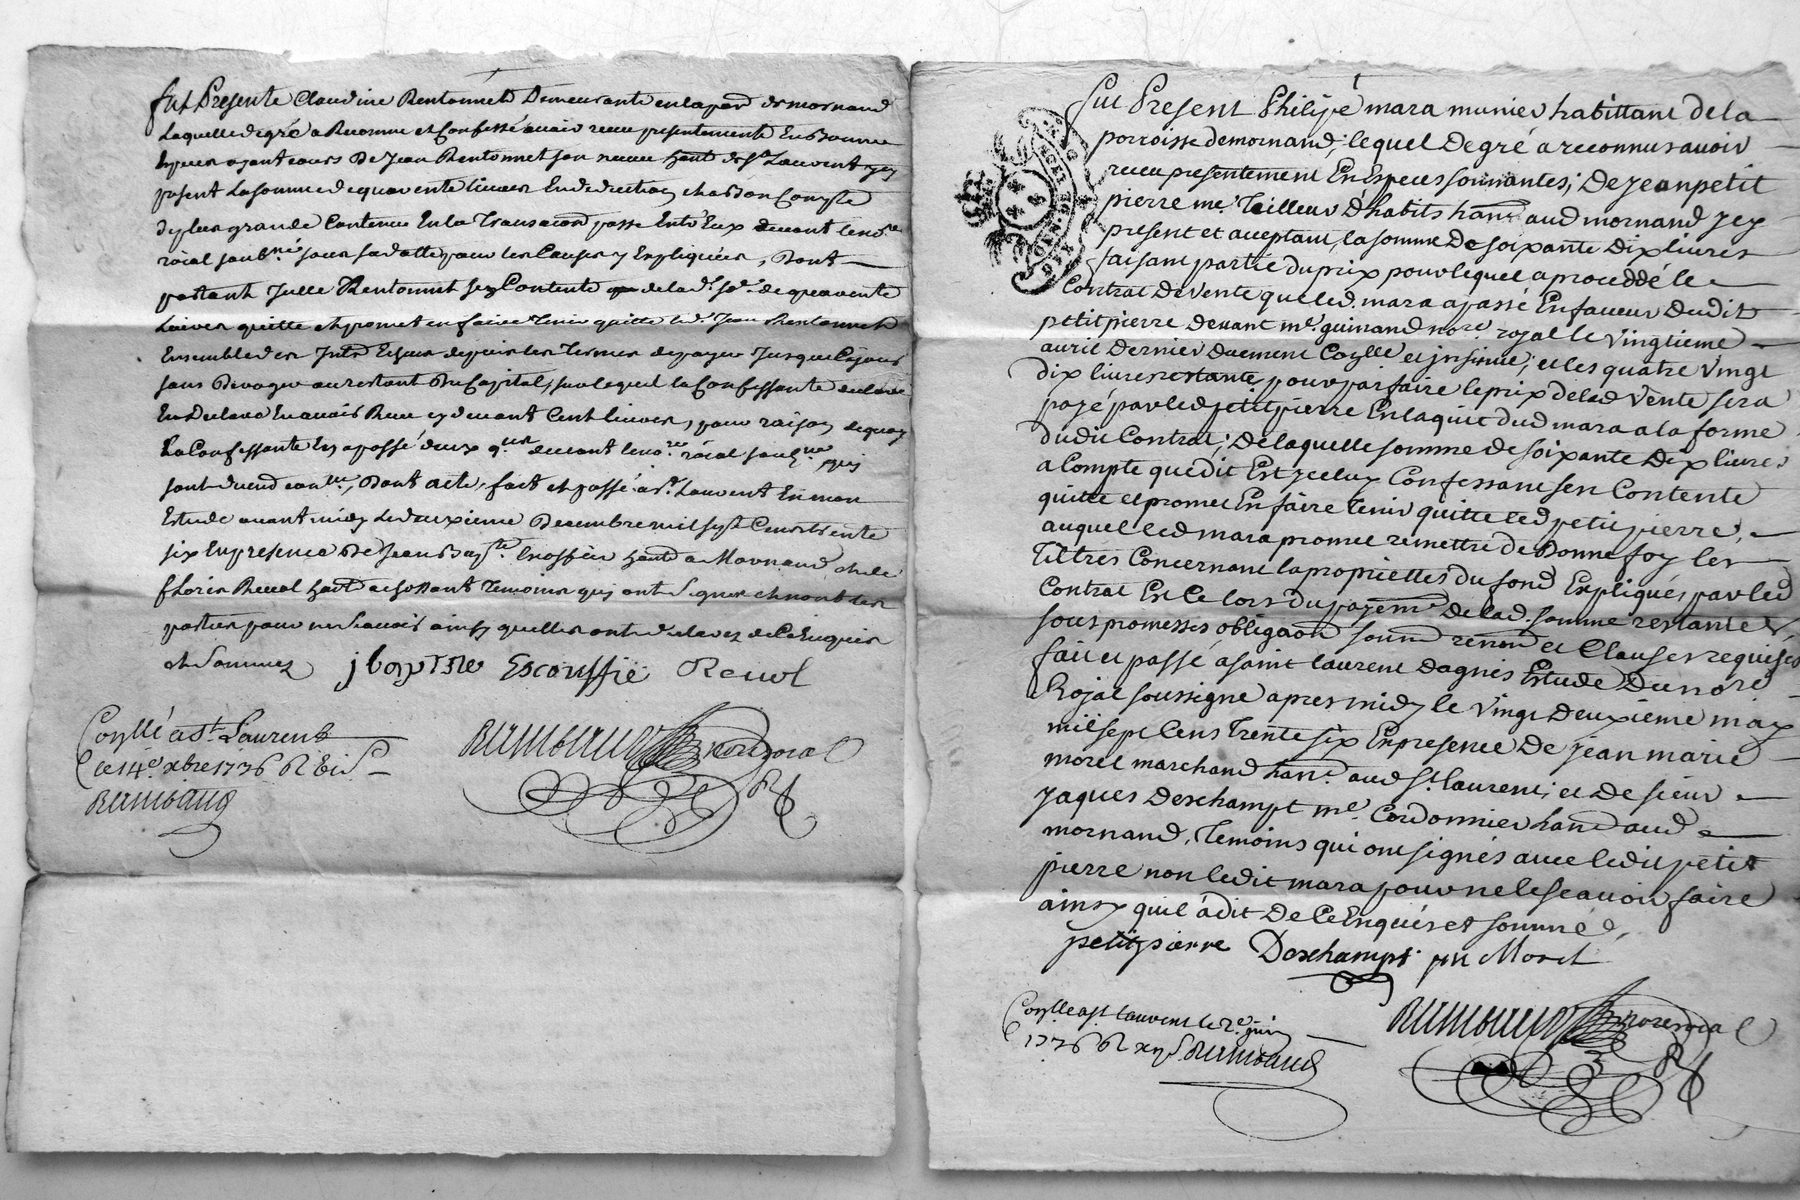 fut Presente Claudine Rentonnet Demeurante en la par. de mornand
Laquelle de gré a Reconnu et Confessé auoir receu presentement En Bonne
Espeses ayant cours De Jean Rentonnet son neueu hant. de St. Laurent yci
present La somme de quarente liures En deduction, et a Bon Compte
de plus grande Contenue En la Transaction passe Entr'Eux deuant le no.re
roial soub.né pour sa dotte pour les Causes y Expliquées, Dont
partant Jcelle Rentonnet se Contente de lad. s.e de quarente
Liures quitte et promet en faire Tenir quitte led. Jean Rentonnet
Ensemble des Jnts. Echeus depuis les Termes de payer Jusque a ce jour
sans Deroger au restant Du Capital, sur lequel la Confessante
En auoir Receu cy deuant Cent liures, pour raison de quoy
La Confessante En a passé deux q.ces deuant le no.re roial soub.né qui
Dont acte, fait et passé a St. Laurent En mon
Estude auant midy Le deuxieme Decembre mil sept Cens trente
six En presence De Jean Bap.te Escoffier hant. a Mornand, et de
Reuol hant. a Temoins qui ont Signés et non les
parties pour ne Scauoir ainsy qu'elles ont declarez de Ce Enquises
et Sommez jbaptiste Escouffié Reuol
Conllé a St. Laurent
ce 14e. xbre 1736 R
Rimbaud
Rimbaud no.re royal
fut Present Philipé mara munier habittant de la
porroisse de mornand; lequel De gré a reconnu auoir
receu presentement En Especes sonnantes; De Jean petit
pierre me. Tailleur D'habits hant. aud mornand yci
present et acceptant, la somme De soixante Dix liures
faisant partie du prix pour lequel a proceddé le
Contrat De Vente que led. mara a passé En faueur Dudit
petit pierre Deuant me. guinand no.re royal le Vingtieme
auril Dernier Duement Conllé et jnsinué; et les quatre Vingt
Dix liures restante, pour parfaire le prix de lad Vente sera
payé par led petit pierre En l'aquit dud mara a la forme
Dudit Contrat; De laquelle somme de soixante Dix liures
a Compte que dit Est jceluy Confessant s'en Contente
quitte et promet En faire Tenir quitte led petit pierre,
auquel led mara promet remettre de Bonne foy les
Tiltres Concernant la propriettes du fond Expliqués par led
Contrat Et Ce lors du payeme. de lad. somme restante
sous promesses obligaon. soumon. renonon. et Clauses requises
fait et passé a saint laurent Dagnis Estude Du no.re
Royal soussigne apres midy le Vingt Deuxieme may
mil sept Cens Trente six En presence De jean marie
morel marchand hant. aud St. laurent; et De sieur
jaques Deschampt me. Cordonnier hant. aud
mornand, Temoins qui ont signés auec ledit petit
pierre non ledit mara pour ne le scauoir faire
ainsy quil a dit De Ce Enquis et sommé.
petitpierre Deschampt jm Morel
Conllé a St. laurent le 2e. juin
1736 R Rimbaud
Rimbaud no.re royal